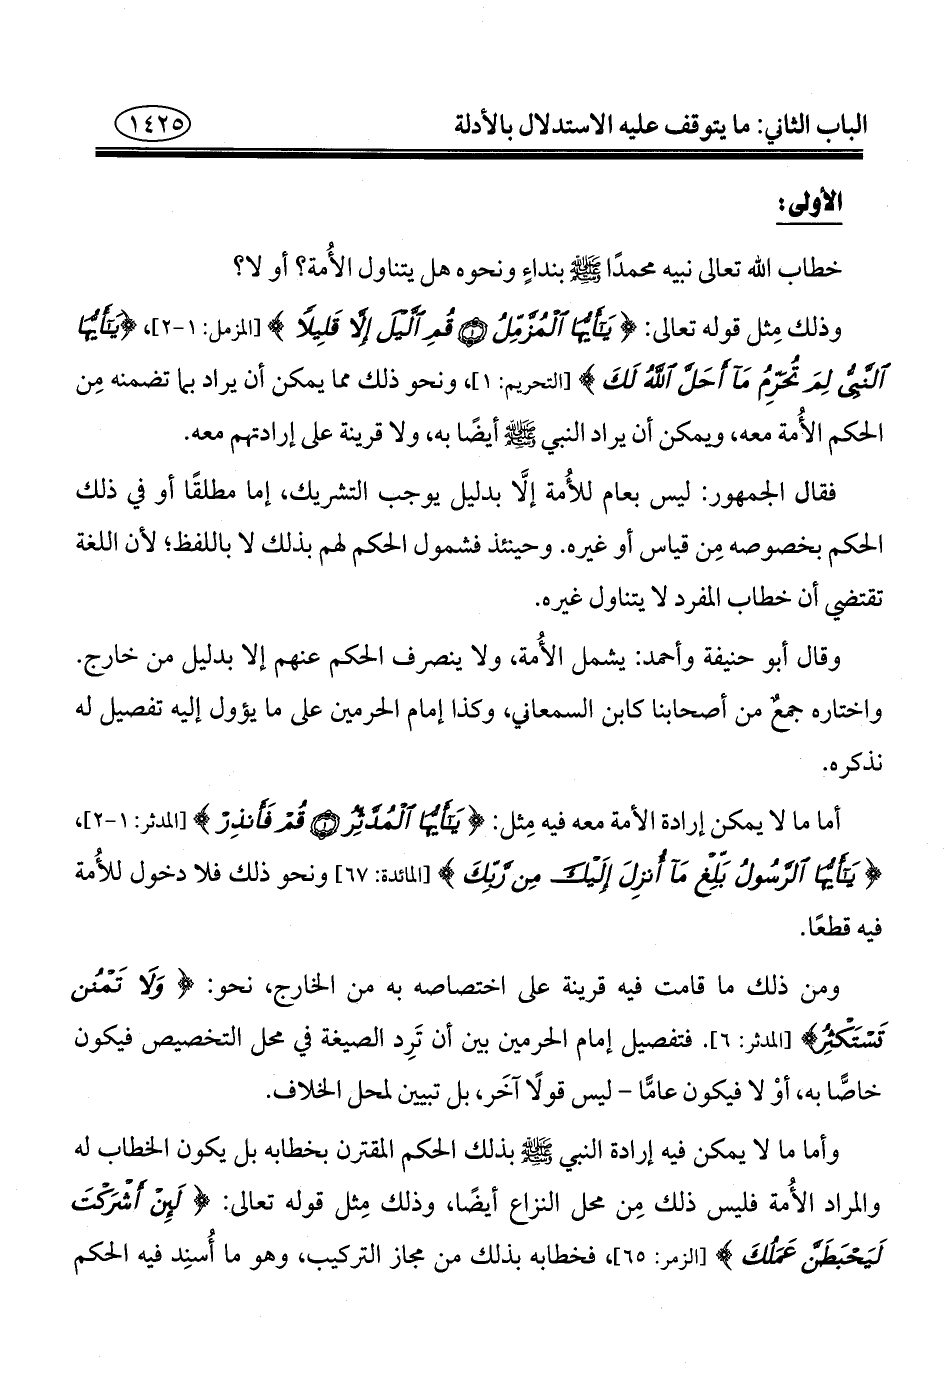 الباب الثاني: ما يتوقف عليه الاستدلال بالأدلة ١٤٢٥
الأولى:
خطاب الله تعالى نبيه محمدًا ﷺ بنداءٍ ونحوه هل يتناول الأُمة؟ أو لا؟
وذلك مِثل قوله تعالى: ﴿ يَٰٓأَيُّهَا ٱلۡمُزَّمِّلُ ١ قُمِ ٱلَّيۡلَ إِلَّا قَلِيلٗا ﴾ [المزمل: ١-٢]، ﴿يَٰٓأَيُّهَا
ٱلنَّبِيُّ لِمَ تُحَرِّمُ مَآ أَحَلَّ ٱللَّهُ لَكَ ﴾ [التحريم: ١]، ونحو ذلك مما يمكن أن يراد بما تضمنه مِن
الحكم الأُمة معه، ويمكن أن يراد النبي ﷺ أيضًا به، ولا قرينة على إرادتهم معه.
فقال الجمهور: ليس بعام للأُمة إلَّا بدليل يوجب التشريك، إما مطلقًا أو في ذلك
الحكم بخصوصه مِن قياس أو غيره. وحينئذ فشمول الحكم لهم بذلك لا باللفظ؛ لأن اللغة
تقتضي أن خطاب المفرد لا يتناول غيره.
وقال أبو حنيفة وأحمد: يشمل الأُمة، ولا ينصرف الحكم عنهم إلا بدليل من خارج.
واختاره جمعٌ من أصحابنا كابن السمعاني، وكذا إمام الحرمين على ما يؤول إليه تفصيل له
نذكره.
أما ما لا يمكن إرادة الأمة معه فيه مِثل: ﴿ يَٰٓأَيُّهَا ٱلۡمُدَّثِّرُ ١ قُمۡ فَأَنذِرۡ ﴾ [المدثر: ١-٢]،
﴿ يَٰٓأَيُّهَا ٱلرَّسُولُ بَلِّغۡ مَآ أُنزِلَ إِلَيۡكَ مِن رَّبِّكَ ﴾ [المائدة: ٦٧] ونحو ذلك فلا دخول للأُمة
فيه قطعًا.
ومن ذلك ما قامت فيه قرينة على اختصاصه به من الخارج، نحو: ﴿ وَلَا تَمۡنُن
تَسۡتَكۡثِرُ﴾ [المدثر: ٦]. فتفصيل إمام الحرمين بين أن تَرِد الصيغة في محل التخصيص فيكون
خاصًّا به، أوْ لا فيكون عامًّا – ليس قولًا آخَر، بل تبيين لمحل الخلاف.
وأما ما لا يمكن فيه إرادة النبي ﷺ بذلك الحكم المقترن بخطابه بل يكون الخطاب له
والمراد الأُمة فليس ذلك مِن محل النزاع أيضًا، وذلك مِثل قوله تعالى: ﴿ لَئِنۡ أَشۡرَكۡتَ
لَيَحۡبَطَنَّ عَمَلُكَ ﴾ [الزمر: ٦٥]، فخطابه بذلك من مجاز التركيب، وهو ما أُسنِد فيه الحكم